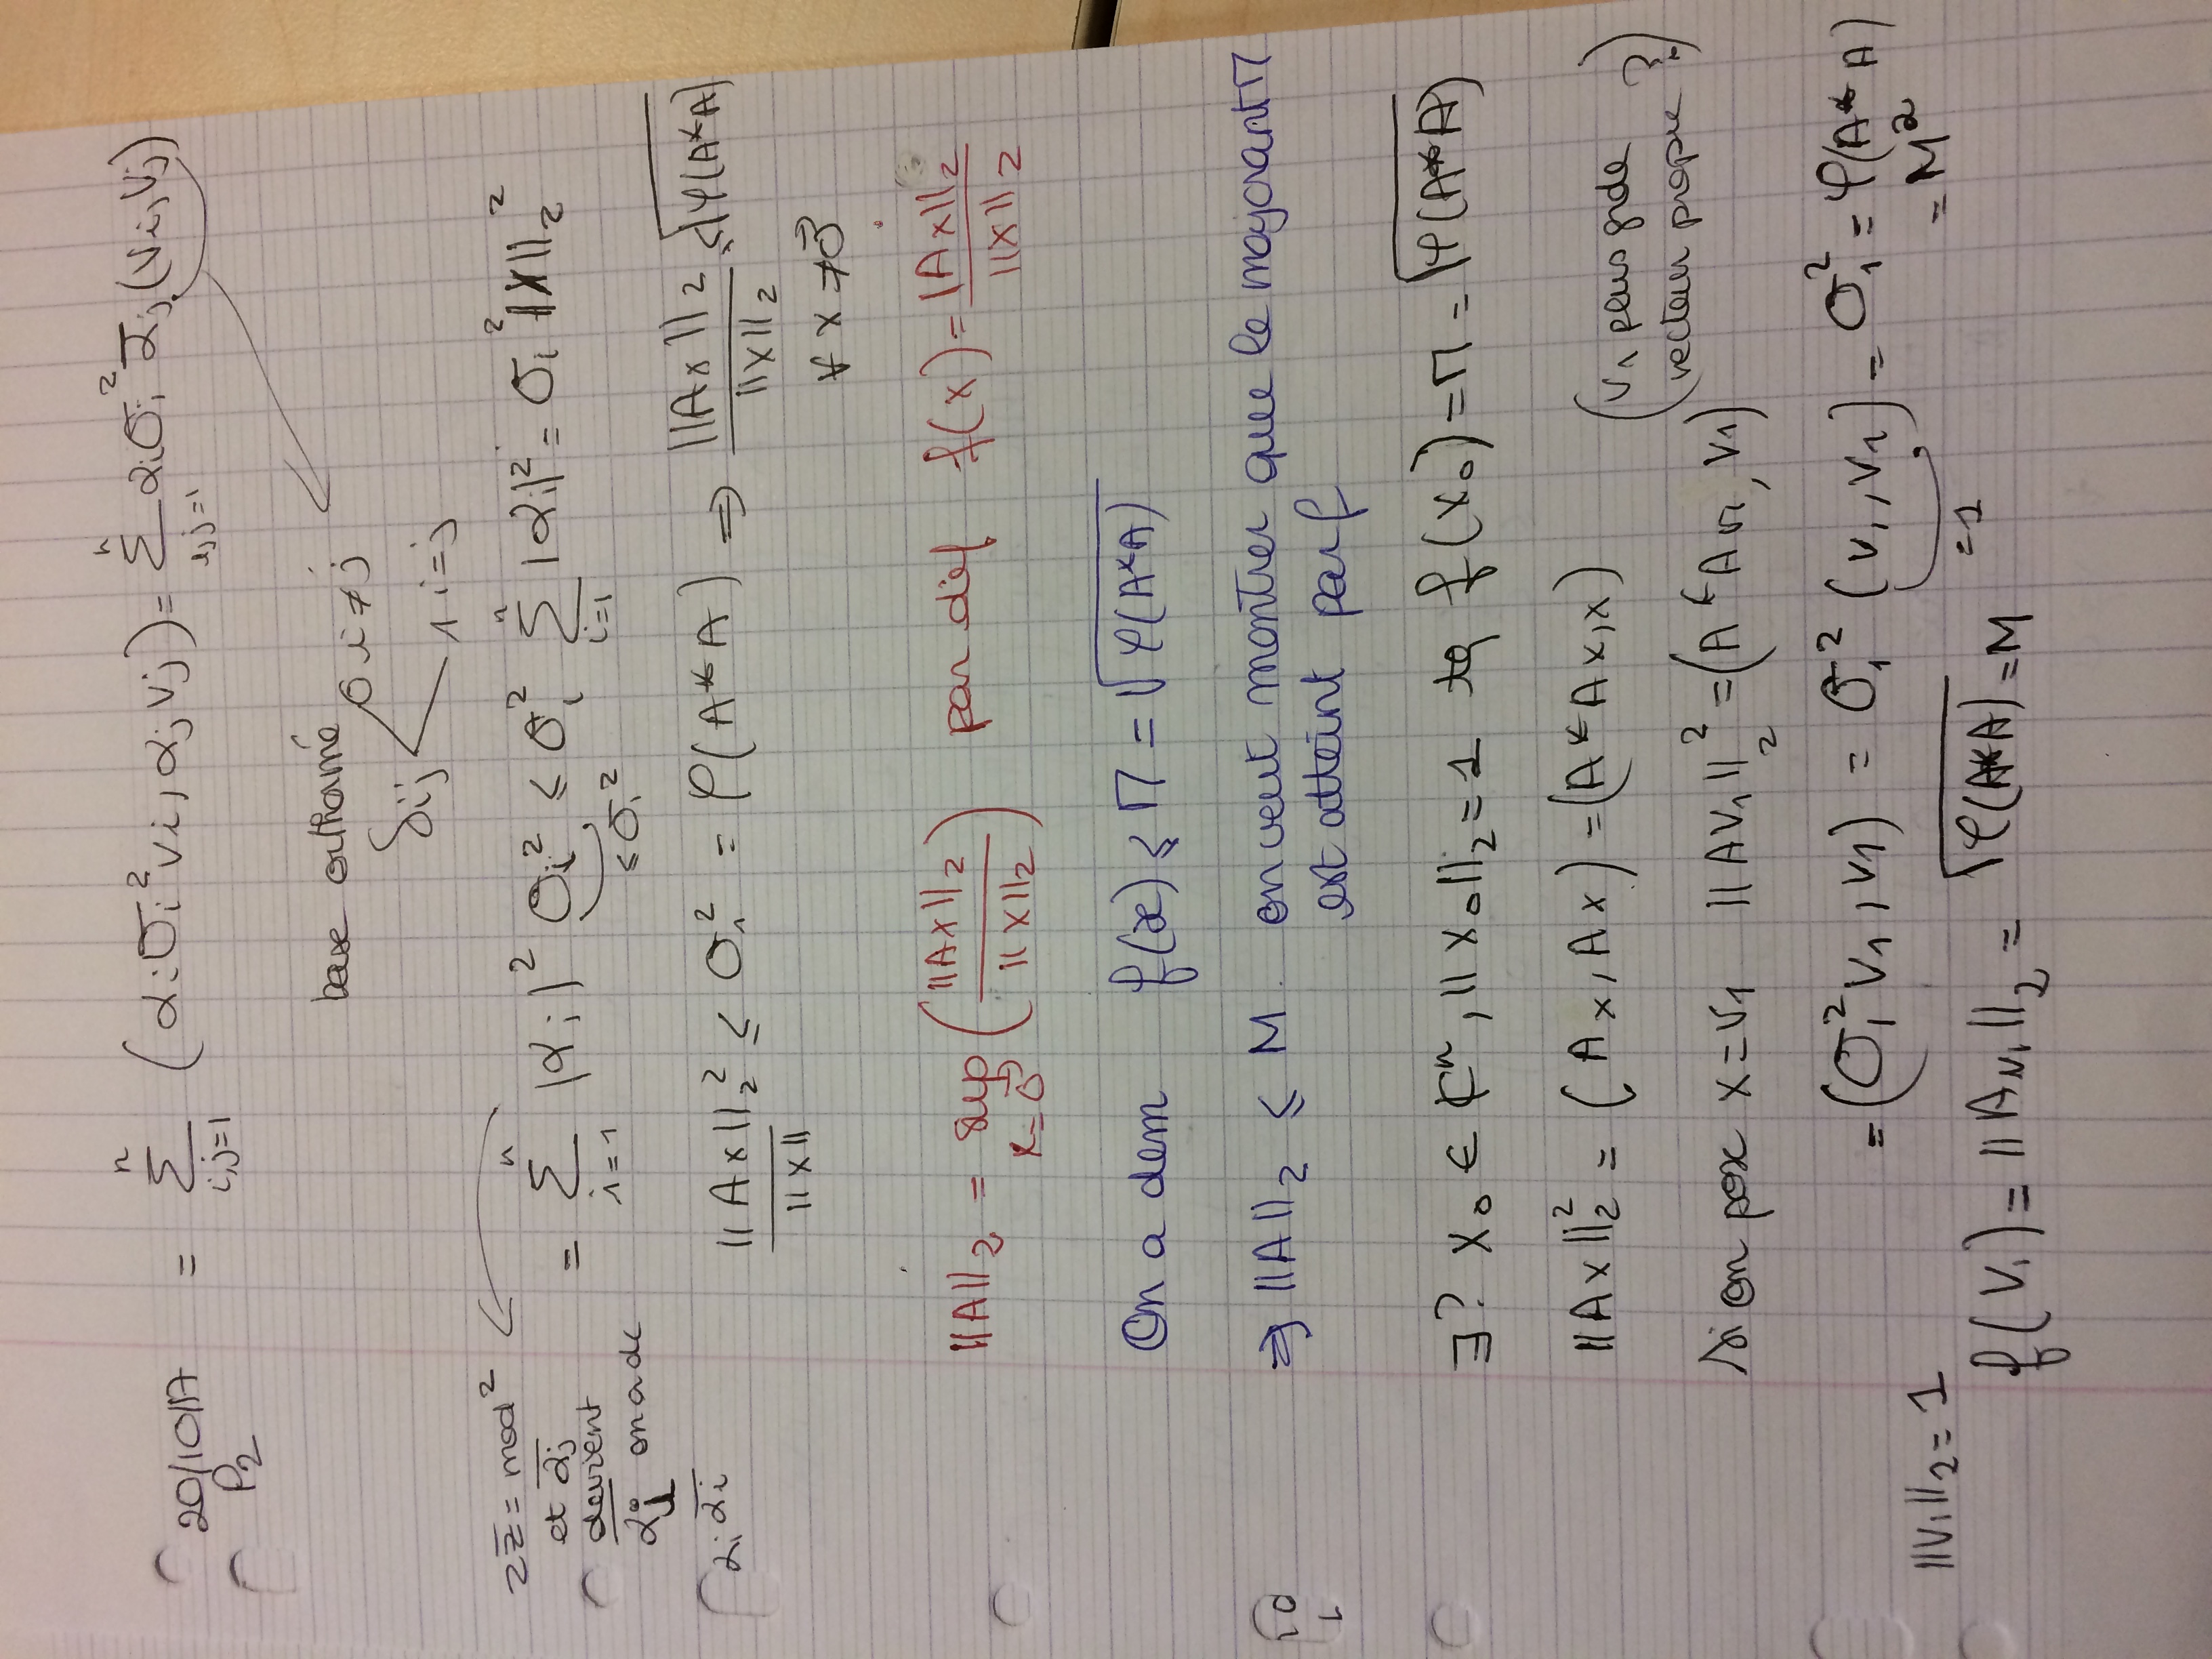 20/10/17 = Σ_{i,j=1}^{n} (αiσi²vi, αjvj) = Σ_{i,j=1}^{n} αiσi² ᾱj (vi, vj)
P2
base orthorné
δij < 0 i≠j
1 i=j
z z̄ = mod²
et ᾱj
devient
ᾱi on a dc
αi ᾱi
= Σ_{i=1}^{n} |αi|² σi² ≤ σ1² Σ_{i=1}^{n} |αi|² = σ1² ||X||₂²
≤ σ1²
||Ax||₂² / ||x|| ≤ σ1² = ρ(A*A) ⇒ ||Ax||₂ / ||x||₂ ≤ √ρ(A*A)
∀ x ≠ 0⃗
||A||₂ = sup_{x=0⃗} (||Ax||₂ / ||x||₂) par déf f(x) = |Ax||₂ / ||x||₂
On a dem f(x) ≤ M = √ρ(A*A)
⇒ ||A||₂ ≤ M on veut montrer que le majorant M
est atteint par f
∃? x₀ ∈ ℂⁿ, ||x₀||₂ = 1 tq f(x₀) = M = √ρ(A*A)
||Ax||₂² = (Ax, Ax) = (A*Ax, x)
(v1 plus grde
vecteur propre ?)
Si on pose x = v1 ||Av1||₂² = (A*Av1, v1)
= (σ1² v1, v1) = σ1² (v1, v1) = σ1² = ρ(A*A)
= M²
= 1
||v1||₂ = 1
f(v1) = ||Av1||₂ = √ρ(A*A) = M